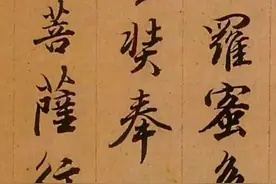 羅蜜多
奘奉
菩薩行